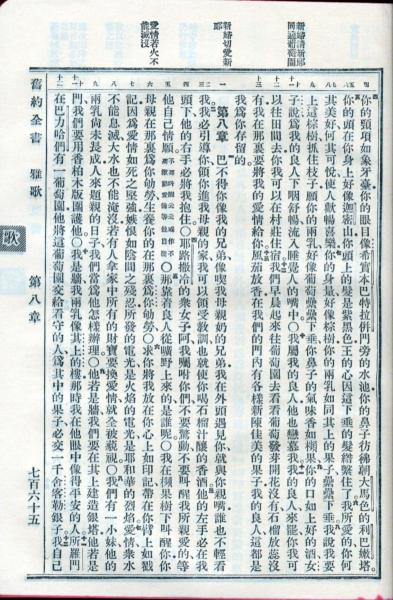 新婦請新郎
同遊葡萄園
新婦切愛新
郎
愛情若火不
能滅沒
你的頸項如象牙臺你的眼目像希實本巴特拉併門旁的水池你的鼻子彷彿朝大馬色的利巴嫩塔
你的頭在你身上好像迦密山你頭上的髮是紫黑色王的心因這下垂的髮綹繫住了我所愛的你何
其美好何其可悅使人歡暢喜樂你的身量好像棕樹你的兩乳如同其上的果子纍纍下垂我說我要
上這棕樹抓住枝子願你的兩乳好像葡萄纍纍下垂你鼻子的氣味香如蘋果你的口如上好的酒女
子說為我的良人下咽舒暢流入睡覺人的嘴中○我屬我的良人他也戀慕我我的良人來罷你我可
以往田間去你我可以在村莊住宿我們早晨起來往葡萄園去看看葡萄發芽開花沒有石榴放蕊沒
有我在那裏要將我的愛情給你風茄放香在我們的門內有各樣新陳佳美的果子我的良人這都是
我為你存留的
第八章 巴不得你像我的兄弟像喫我母親奶的兄弟我在外頭遇見你就與你親嘴誰也不輕看
我我必引導你領你進我母親的家我可以領受教訓也就使你喝石榴汁釀的香酒他的左手必在我
頭下他的右手必將我抱住○耶路撒冷的衆女子阿我囑咐你們不要驚動不要叫醒我所親愛的等
他自己情願○那靠着良人從曠野上來的是誰呢○我在蘋果樹下叫醒你你
母親在那裏為你劬勞生養你的在那裏為你劬勞○求你將我放在你心上如印記帶在你臂上如戳
記因為愛情如死之堅強嫉恨如陰間之殘忍所發的電光是火焰的電光是耶和華的烈焰愛情衆水
不能息滅大水也不能淹沒若有人拿家中所有的財寶要換愛情就全被藐視○我們有一小妹他的
兩乳尚未長成人來題親的日子我們當為他怎樣辦理○他若是牆我們要在其上建造銀塔他若是
門我們要用香柏木版圍護他○我是牆我兩乳像其上的樓那時我在他眼中像得平安的人所羅門
在巴力哈們有一葡萄園他將這葡萄園交給看守的人為其中的果子必交一千舍客勒銀子我自己
舊約全書 雅歌 第八章 七百六十五
歌